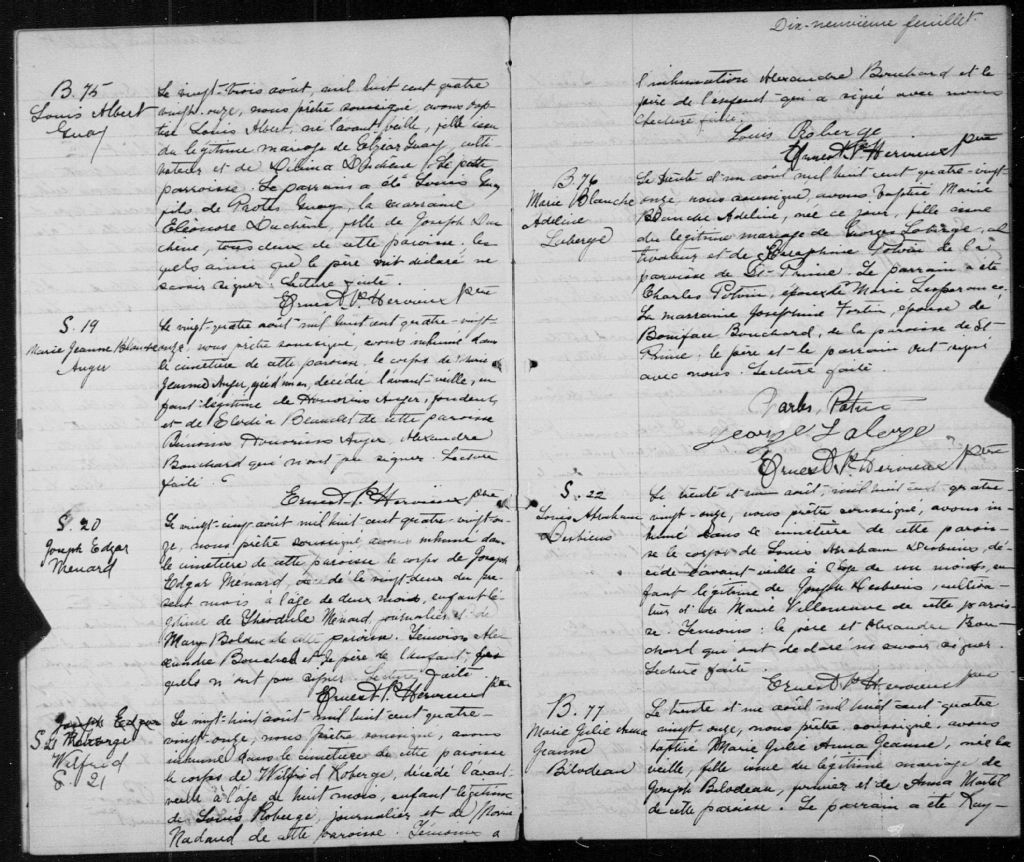 B. 75
Louis Albert
Guay
Le vingt-trois août, mil huit cent quatre
vingt-onze, nous prêtre soussigné avons bap-
tisé Louis Albert, né l'avant-veille, fils issu
du légitime mariage de Elzéar Guay, culti-
vateur et de Délima Duchène de cette
paroisse. Le parrain a été Louis Guay
fils de Protès Guay, la marraine
Eléonore Duchène, fille de Joseph Du-
chène, tous deux de cette paroisse. les
quels ainsi que le père ont déclaré ne
savoir signer. Lecture faite.
Ernest P. Hervieux ptre
S. 19
Marie Jeanne
Auger
Le vingt-quatre août mil huit cent quatre-vingt-
onze, nous prêtre soussigné, avons inhumé dans
le cimetière de cette paroisse, le corps de Marie
Jeanne Auger, décédée l'avant-veille, en
fant légitime de Honorius Auger,
et de Elodia de cette paroisse
Témoins Honorius Auger, Alexandre
Bouchard qui n'ont pu signer. Lecture
faite.
Ernest P. Hervieux ptre
S. 20
Joseph Edgar
Menard
Le vingt-cinq août mil huit cent quatre-vingt-on-
ze, nous prêtre soussigné avons inhumé dans
le cimetière de cette paroisse le corps de Joseph
Edgar Menard décédé le vingt-deux du pré-
sent mois à l'âge de deux mois, enfant lé-
gitime de Théodule Ménard, journalier et de
Mary Bolduc de cette paroisse. Témoins Alex-
andre Bouchard et le père de l'enfant, les
quels n'ont pu signer. Lecture faite.
Ernest P. Hervieux ptre
Joseph Edgar
S 21 Roberge
Wilfrid
S. 21
Le vingt-huit août mil huit cent quatre-
vingt-onze, nous prêtre soussigné, avons
inhumé dans le cimetière de cette paroisse
le corps de Wilfrid Roberge, décédé l'avant-
veille à l'âge de huit mois, enfant légitime
de Louis Roberge, journalier et de Marie
Nadaud de cette paroisse. Témoins à
Dix-neuvième feuillet.
l'inhumation Alexandre Bouchard et le
père de l'enfant qui a signé avec nous
Lecture faite.
Louis Roberge
Ernest P. Hervieux ptre
B. 76
Marie Blanche
Adeline
Laberge
Le trente et un août mil huit cent quatre-vingt-
onze, nous soussigné, avons baptisé Marie
Blanche Adeline, née ce jour, fille issue
du légitime mariage de Georges Laberge, cul
tivateur et de Joséphine Potvin de la
paroisse de St-Prime. Le parrain a été
Charles Potvin, époux de Marie Lesperance.
La marraine Joséphine Fortin, épouse de
Boniface Bouchard, de la paroisse de St
Prime; le père et le parrain ont signé
avec nous. Lecture faite.
Charles Potvin
George Laberge
Ernest P. Hervieux ptre
S. 22
Louis Abraham
Desbiens
Le trente et un août, mil huit cent quatre-
vingt-onze, nous prêtre soussigné, avons in-
humé dans le cimetière de cette parois-
se le corps de Louis Abraham Desbiens, dé-
cédé l'avant-veille à l'âge de un mois, en
fant légitime de Joseph Desbiens, cultiva-
teur et de Marie Villeneuve de cette parois-
se. Témoins: le père et Alexandre Bou-
chard qui ont déclaré ne savoir signer.
Lecture faite.
Ernest P. Hervieux ptre
B. 77
Marie Julie Anna
Jeanne
Bilodeau
Le trente et un août mil huit cent quatre
vingt-onze, nous, prêtre soussigné, avons
baptisé Marie Julie Anna Jeanne, née la
veille, fille issue du légitime mariage de
Joseph Bilodeau, fermier et de Anna Martel
de cette paroisse. Le parrain a été Ray-